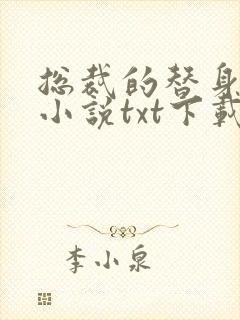 总裁的替身
小说txt下载
李小泉